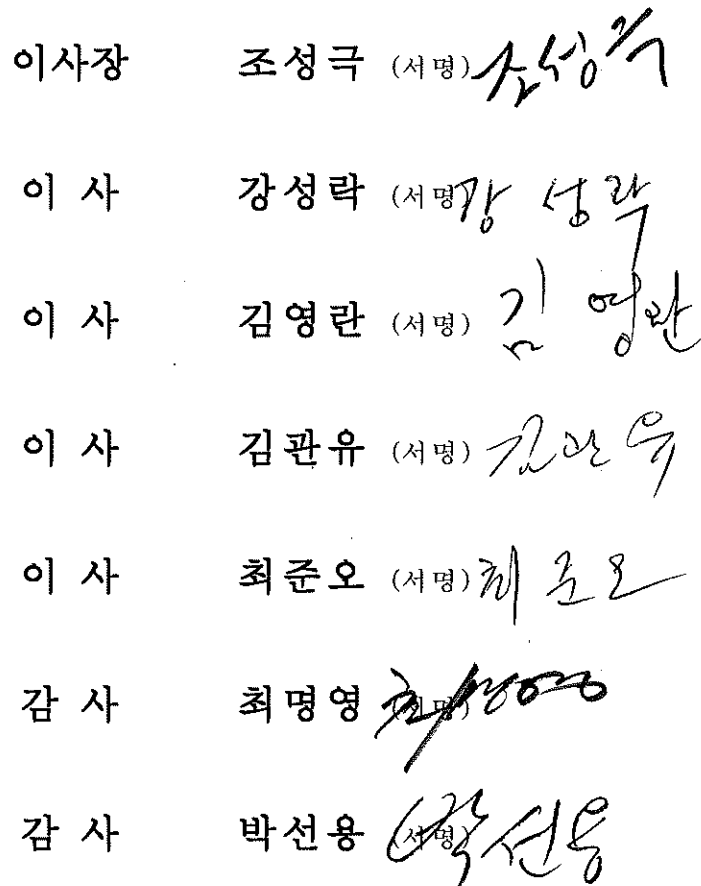 이사장 조성극 (서명) 조성극
이 사 강성락 (서명) 강성락
이 사 김영란 (서명) 김영란
이 사 김관유 (서명) 김관유
이 사 최준오 (서명) 최준오
감 사 최명영 (서명) 최명영
감 사 박선용 (서명) 박선용